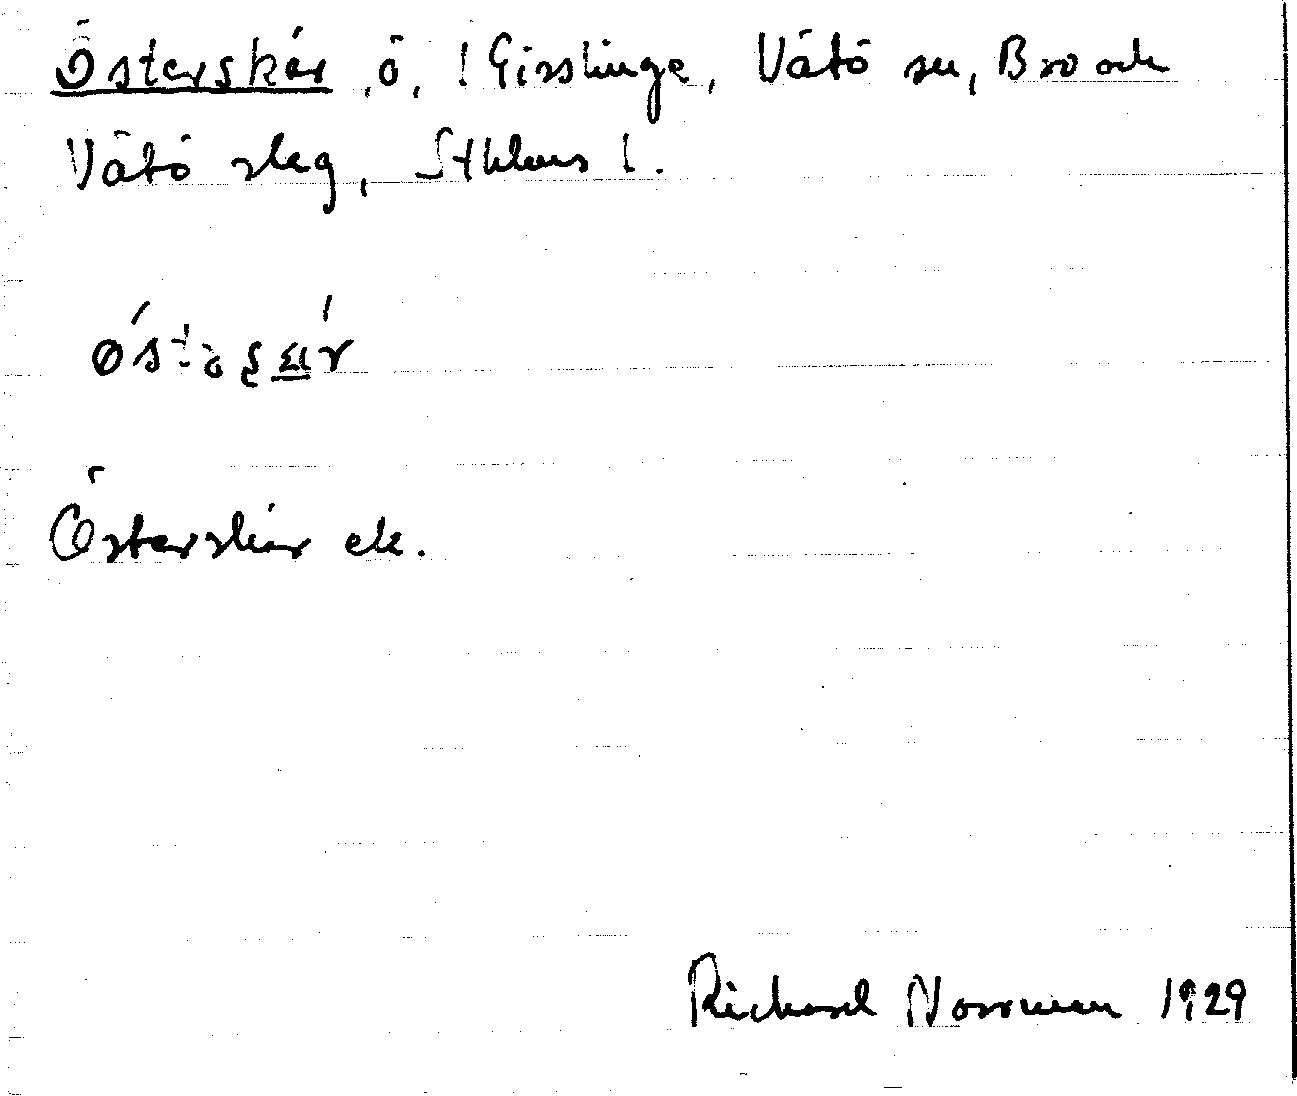 Österskär, ö, ! Gisslinge, Vätö sn, Bro och
Vätö slag, Sthlms l.
Österskär ek.
Richard Norrman 1929